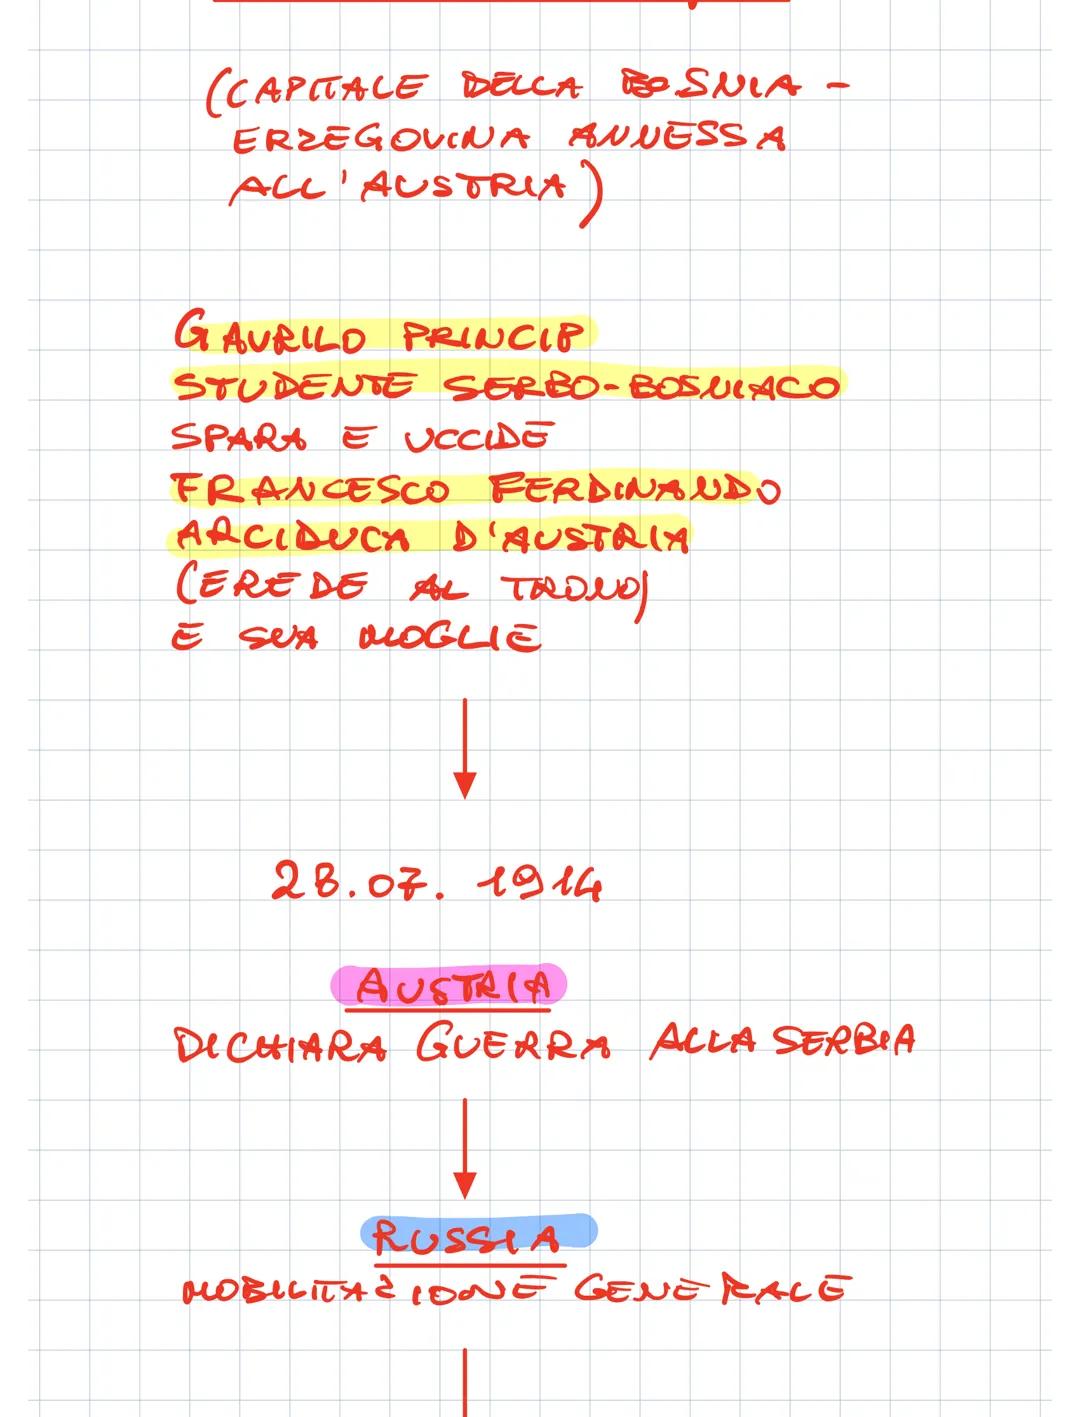 (CAPITALE DELLA BOSNIA -
ERZEGOVINA ANNESSA
ALL'AUSTRIA)
GAVRILO PRINCIP
STUDENTE SERBO-BOSNIACO
SPARA E UCCIDE
FRANCESCO FERDINANDO
ARCIDUCA D'AUSTRIA
(EREDE AL TRONO)
E SUA MOGLIE
28.07.1914
AUSTRIA
DICHIARA GUERRA ALLA SERBIA
RUSSIA
MOBILITAZIONE GENERALE